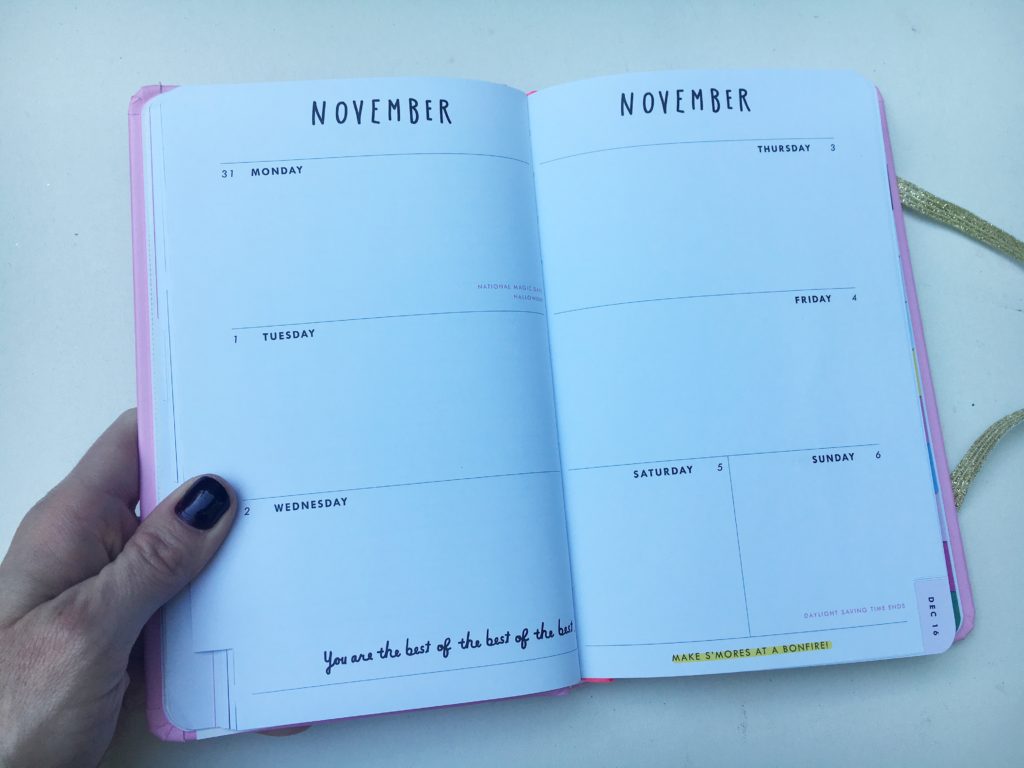 NOVEMBER
31 MONDAY
NATIONAL MAGIC DAY
HALLOWEEN
1 TUESDAY
2 WEDNESDAY
You are the best of the best of the best
NOVEMBER
THURSDAY 3
FRIDAY 4
SATURDAY 5
SUNDAY 6
DAYLIGHT SAVING TIME ENDS
MAKE S'MORES AT A BONFIRE!
DEC 16